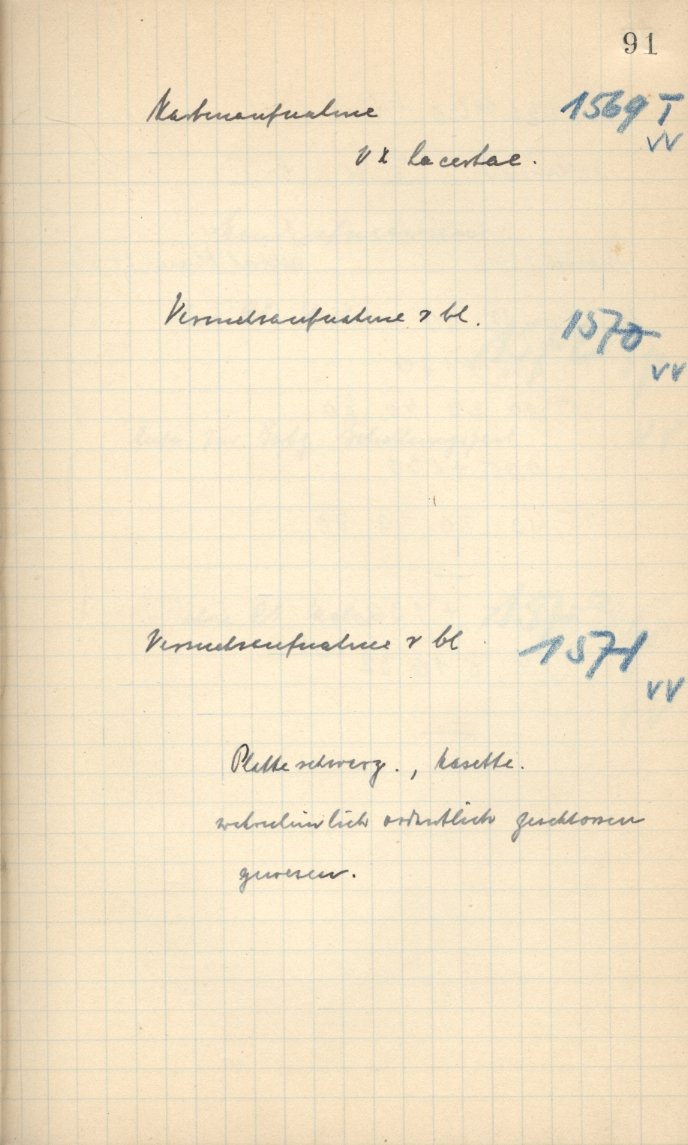 91
Kartenaufnahme 1569 I
VV
VX Lacertae.
Versuchsaufnahme v bl. 1570
VV
Versuchsaufnahme v bl 1571
VV
Platte schwarz., Kasette.
wahrscheinlich ordentlich geschlossen
gewesen.